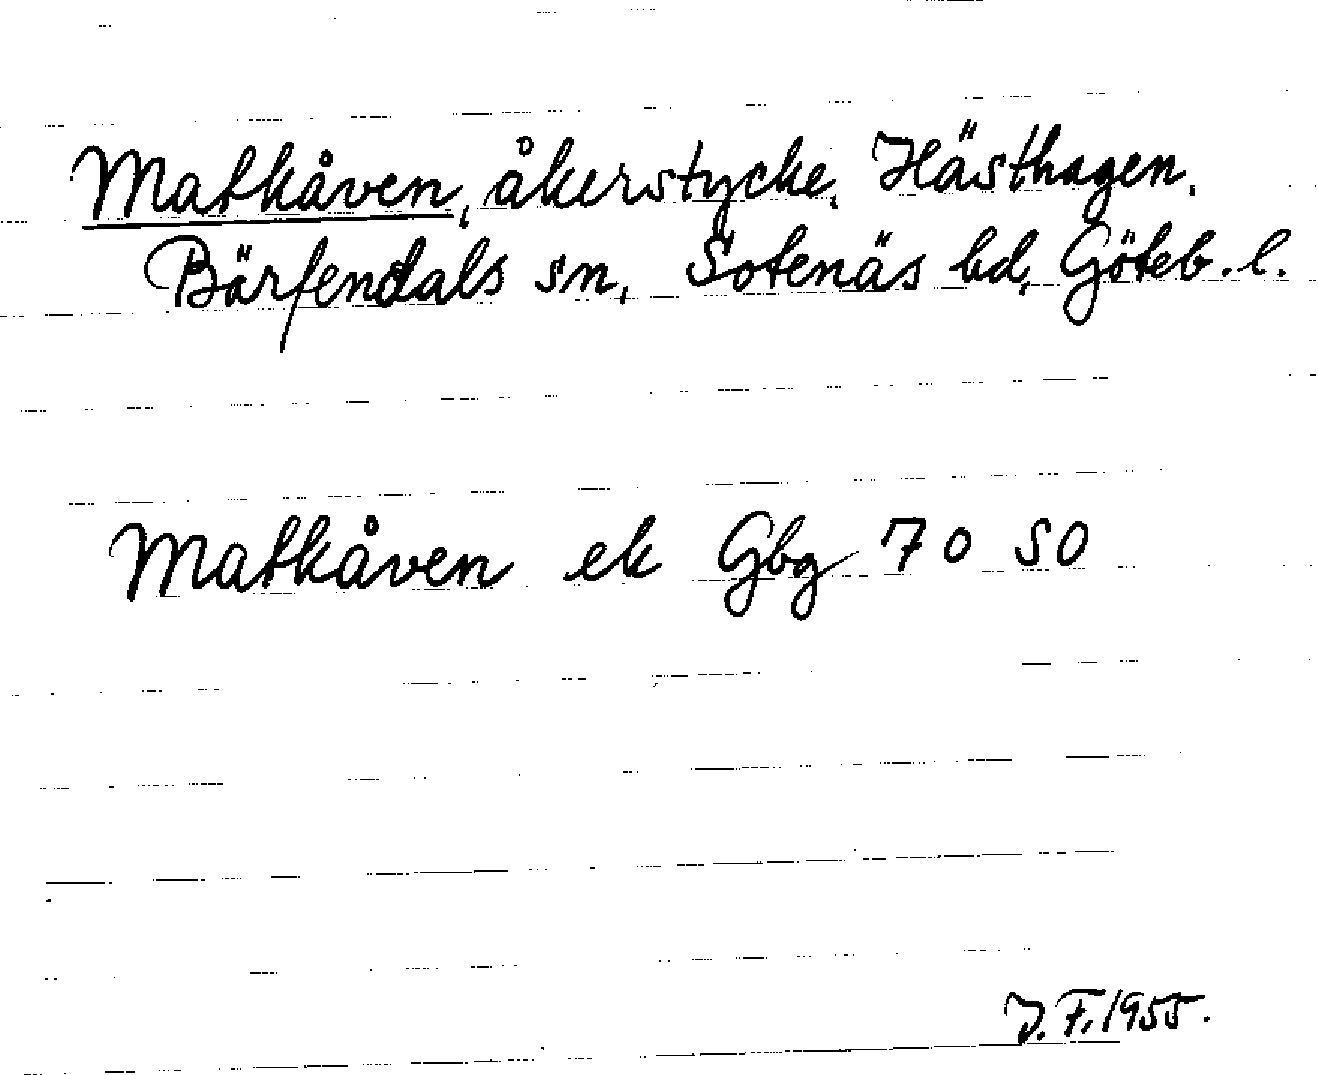 Matkåven, åkerstycke, Hästhagen.
Bärfendals sn, Sotenäs hd, Göteb. l.
Matkåven ek Gbg 70 50
J. F. 1955.